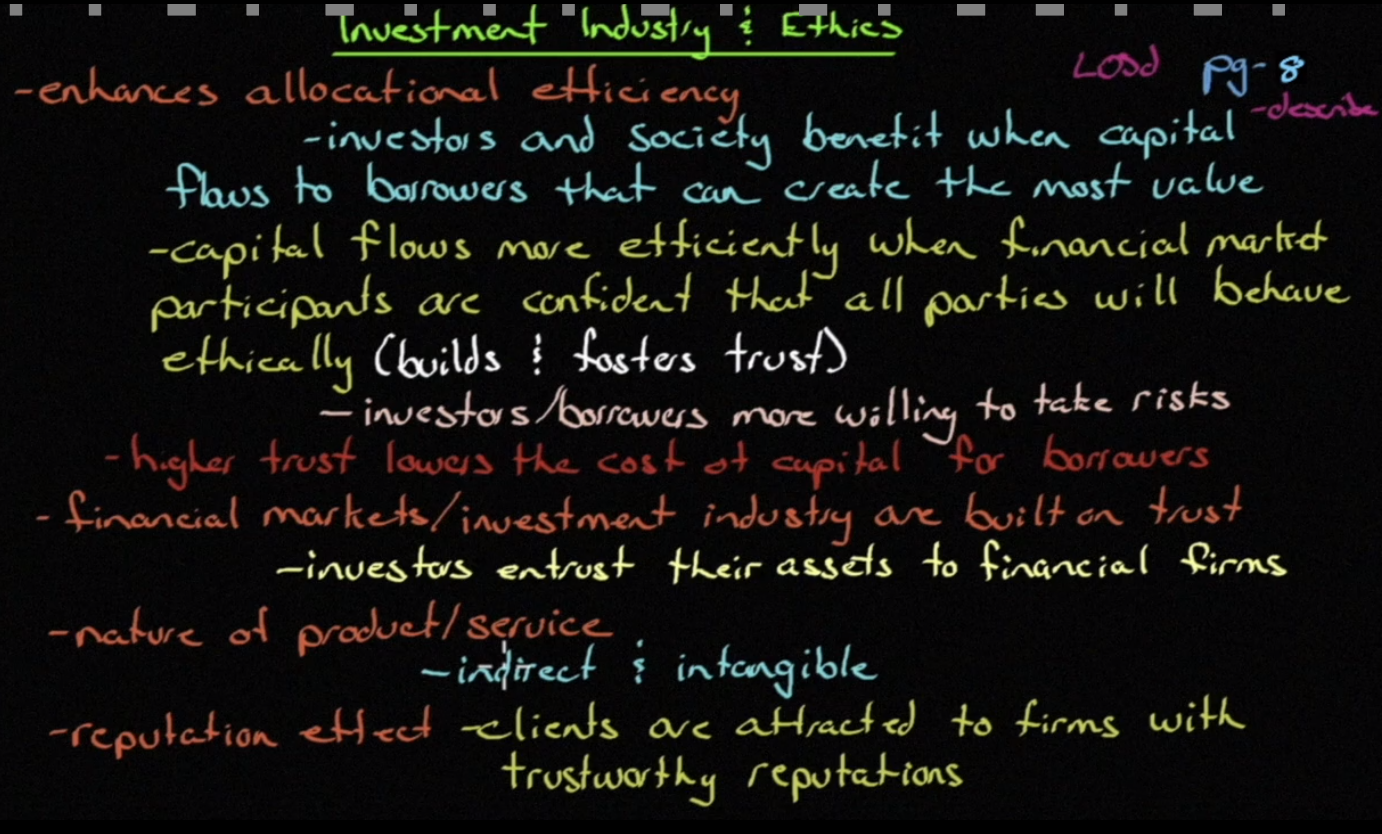 Investment Industry & Ethics
LOSd pg-8
-describe
-enhances allocational efficiency
-investors and society benefit when capital
flows to borrowers that can create the most value
-capital flows more efficiently when financial market
participants are confident that all parties will behave
ethically (builds & fosters trust)
-investors/borrowers more willing to take risks
-higher trust lowers the cost of capital for borrowers
-financial markets/investment industry are built on trust
-investors entrust their assets to financial firms
-nature of product/service
-indirect & intangible
-reputation effect -clients are attracted to firms with
trustworthy reputations